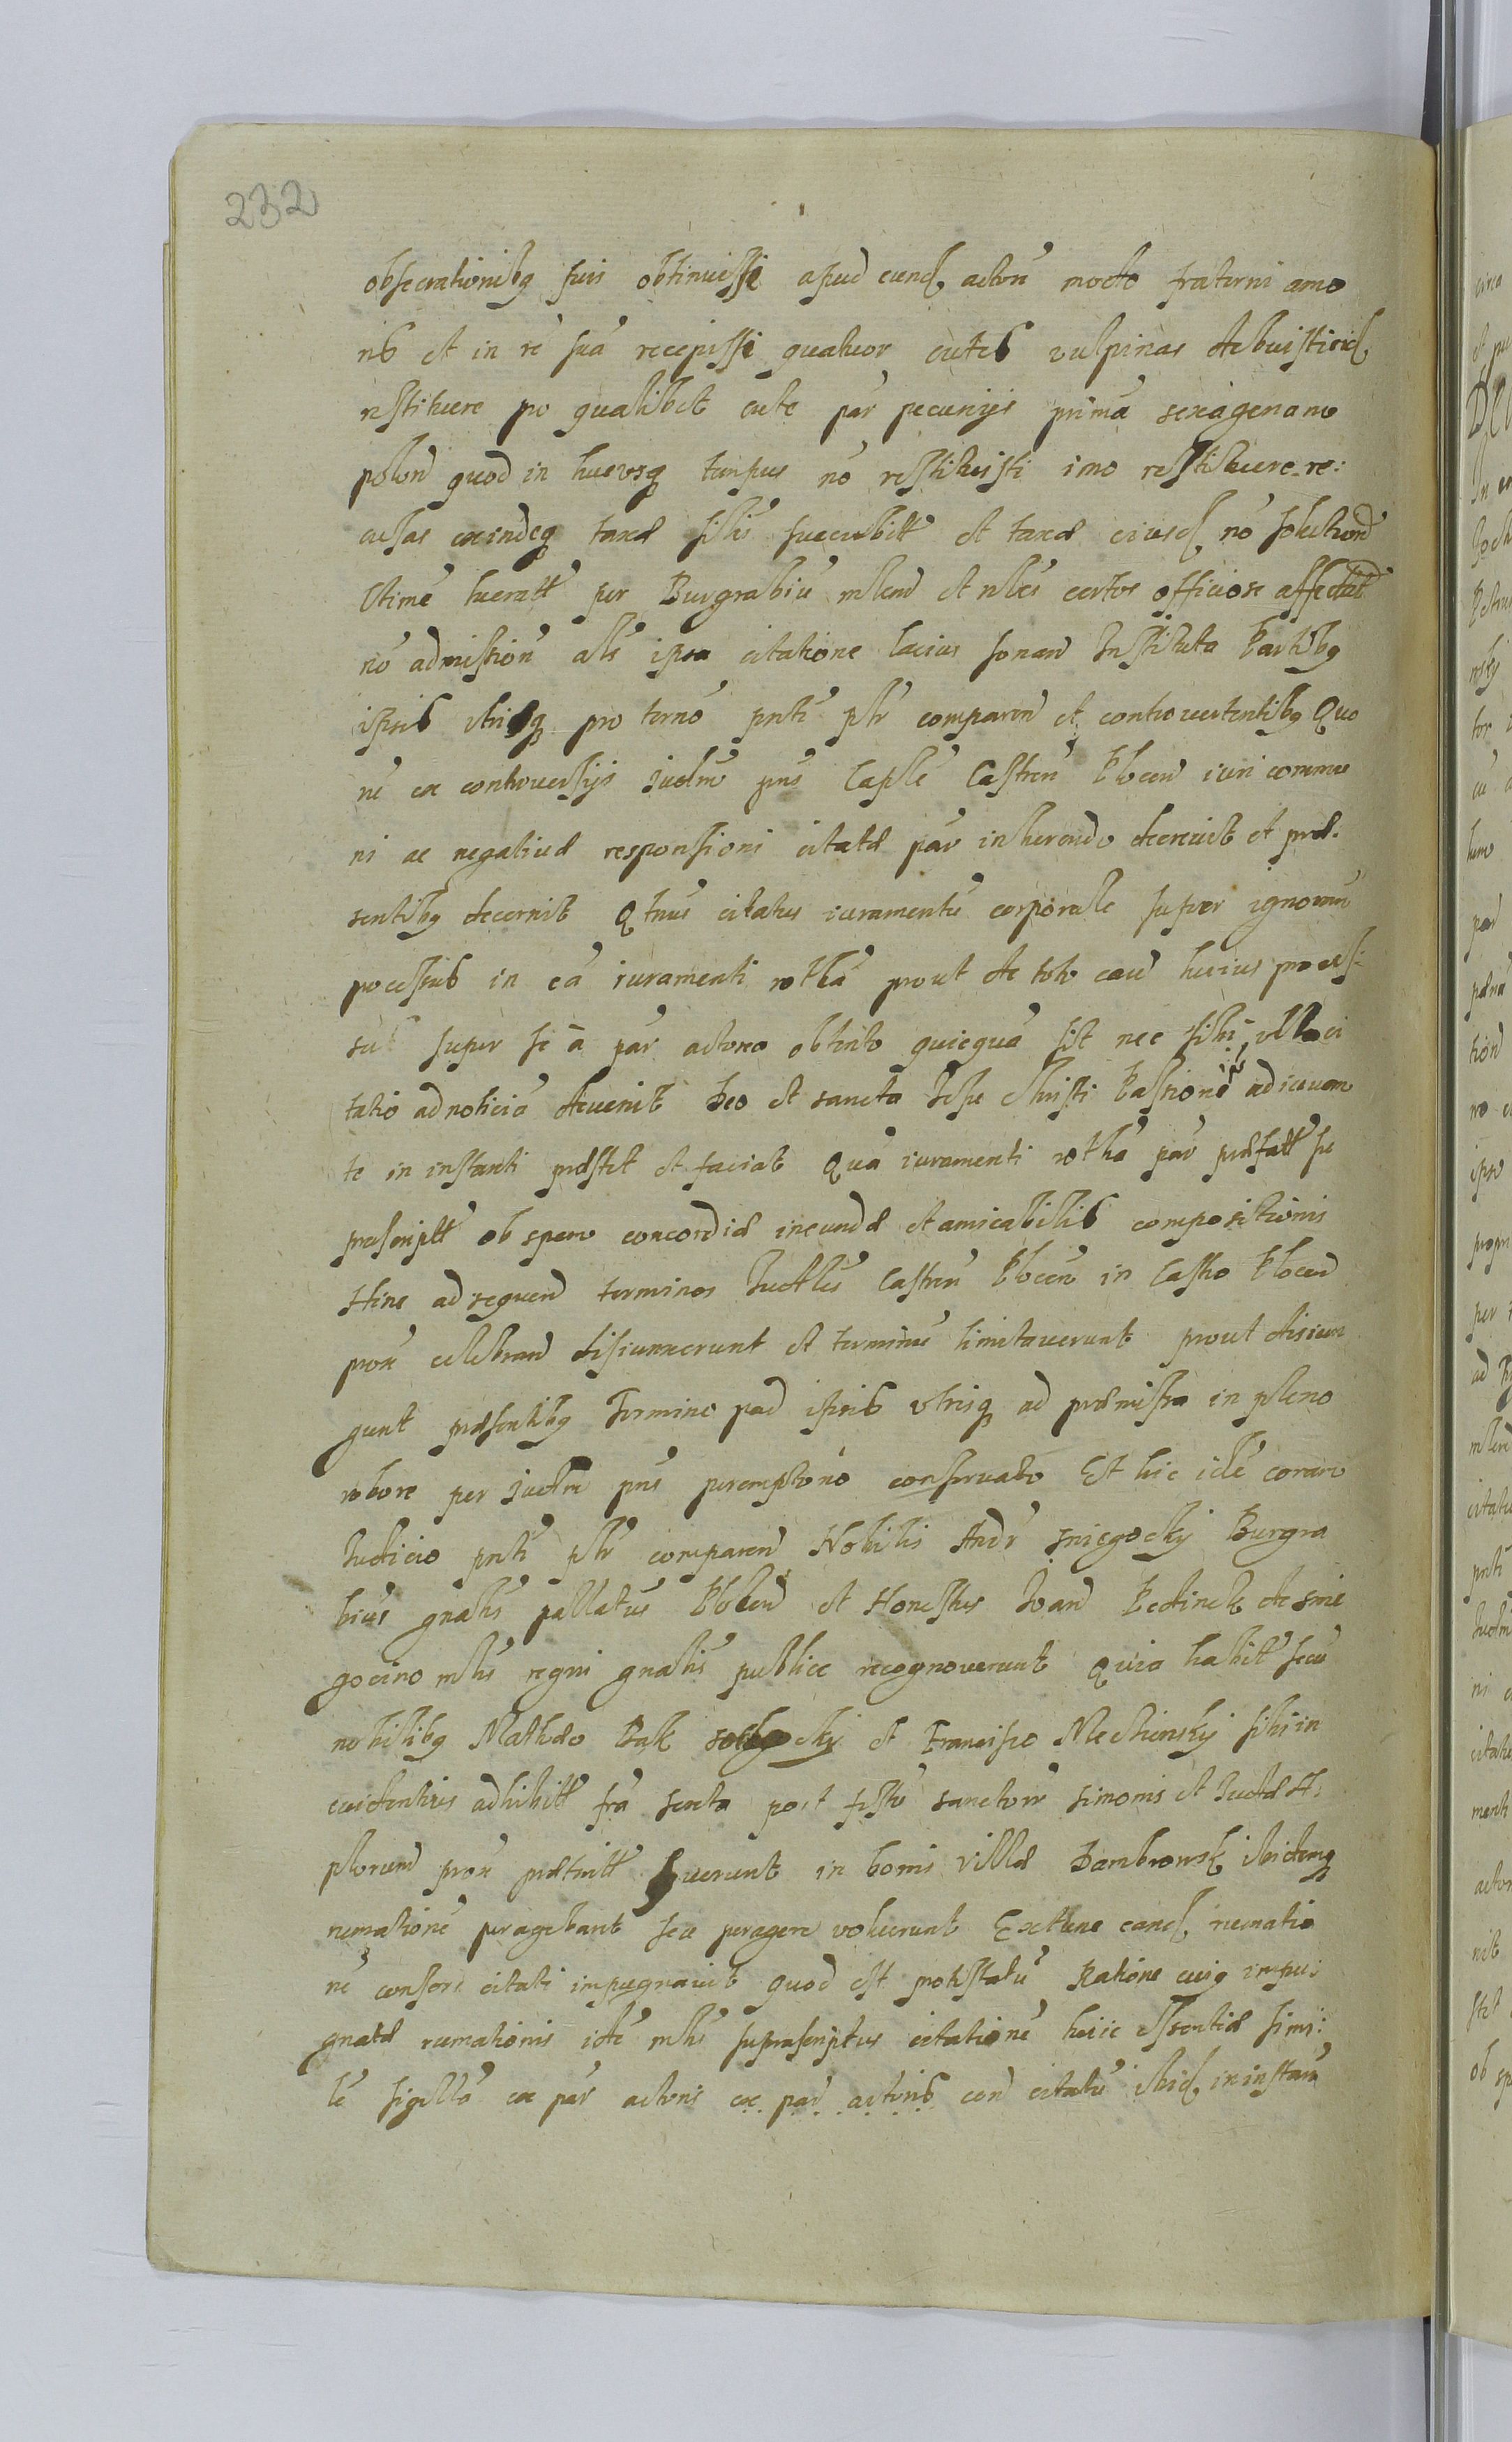 232
obsecrationibq suis obtinuisse apud eund actorē modo fraterni amo
ris et in rē suā recepisse quatuor cutes vulpinas debuisti eid
restituere pro qualibet cute par pecuniis primā sexagenam
polon quod in hucusq tempus nō restituisti imo restituere re:
cusas exindeq taxæ similis succubitt et taxæ eiusd nō solution
Ultimē lueratt per Burgrabiū et certos officiose affectat
nō admission als ipsa citatione lacius sonan Instituta Partibq
ipsis utrisq pro termo pnti pltr comparen et controvertentibq Quo
rū ex controversijs Judm pns Capli Castren Plocen iuri commu
ni ac negativæ responsioni citatæ par inhærendo decrevit et præ
sentibq decernit Qtnus citatus iuramentū corporale super ignoran
processus in eā iuramenti rothā prout de toto eau huius process:
sus super se ā par actorea obtento quicquā sit nec sibi ulla ci
tatio ad noticiā devenit Deo et sancta Jesu Christi Passione adiuvan
te in instanti præstet et faciat Quā iuramenti rothā par præfatt su
prascriptt ob spem concordiæ ineundæ et amicabilis compositionis
Hinc ad sequend terminos Judtles Castren Plocen in Castro Plocen
prox celebrand disiunxerunt et terminū limitaverunt prout disiun
gunt præsentibq Termino pad ipsis utrisq ad præmissa in pleno
robore per Judm pns peremptoriō conservato Et hic idē coram
Judicio pnti pltr comparen Nobilis Andr Sniegocky Burgra
bius gnalis pallatus Plocen et Honestus Joan Pedinck de Snie
gocino mlis regni gnalis publice recognoverunt Quia habitt secū
nobilibq Mathæo Bak et Francisco Mechinskj sibi in
evidentius adhibitt fra sexta post festū sanctorū Simonis et Judæ A:
plorum prox præteritt fuerunt in bonis villæ Dambrowsk ibidemq
rumationē peragebant seu peragere voluerunt Extunc eand rumatio
nē consors citati impugnavit quod est protestatū Ratione cuiq impu:
gnatæ rumationis idē mlis suprascriptus citationē huic essentiæ simi:
lē sigillō ex par actoris ex par actoris con citatū ibid in instan